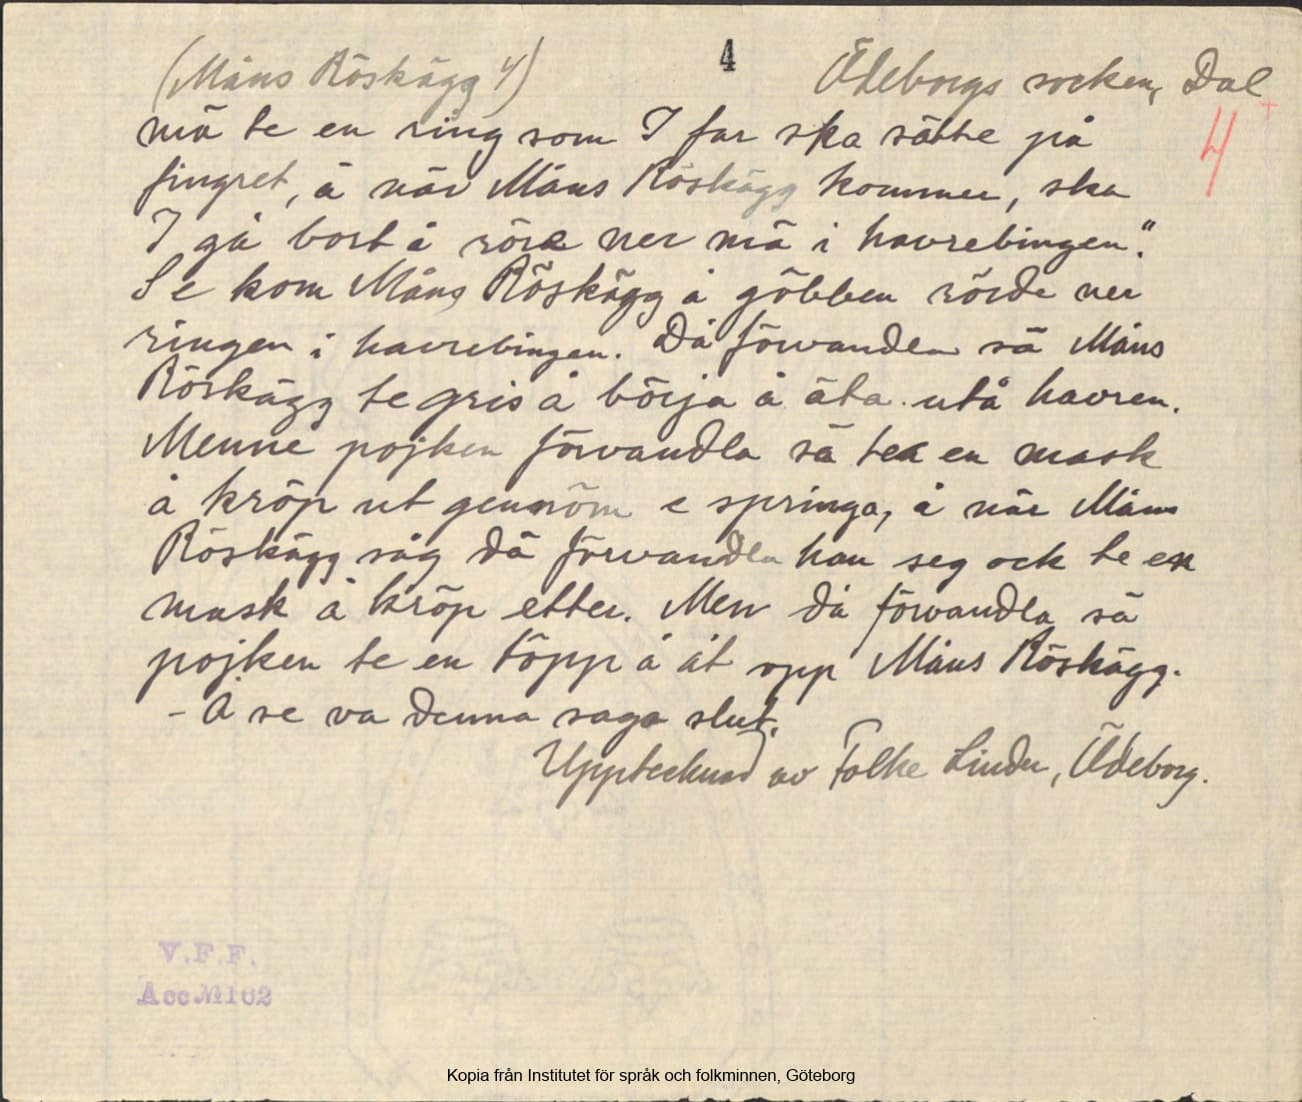 (Måns Röskägg 4) 4 Ödeborgs socken, Dal
4
mä te en ring som I far ska sätte på
fingret, å när Måns Röskägg kommer, ska
I gå bort å röre ner mä i havrebingen."
Se kom Måns Röskägg å göbben rörde ner
ringen i havrebingen. Då förvandla sä Måns
Röskägg te gris å börja å äta utå havren.
Menne pojken förvandla sä te en mask
å kröp ut gennöm e springa, å när Måns
Röskägg såg dä förvandla han seg ock te en
mask å kröp etter. Men då förvandla sä
pojken te en töpp å åt opp Måns Röskägg.
- Å se va denna saga slut.
Upptecknad av Folke Linder, Ödeborg.
V.F.F.
Acc № 102
Kopia från Institutet för språk och folkminnen, Göteborg